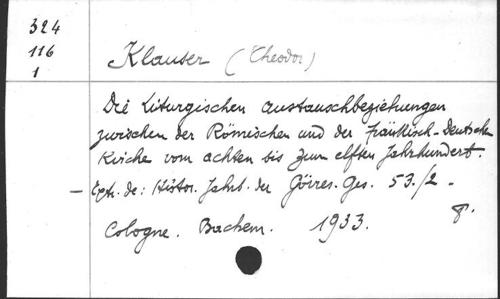 324
116
1
Klauser (Theodor)
Die Liturgischen austauschbeziehungen
zwischen der Römischen und der fränkisch-Deutschen
Kirche vom achten bis zum elften Jahrhundert.
— Extr. de: Histor. Jahrb. der Görres. Ges. 53./2 -
8°.
Cologne. Bachem. 1933.